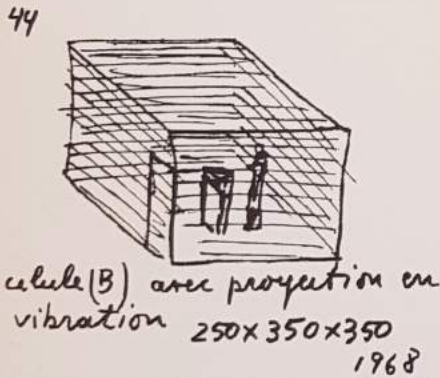 44
celule (B) avec proyection en
vibration 250 x 350 x 350
1968